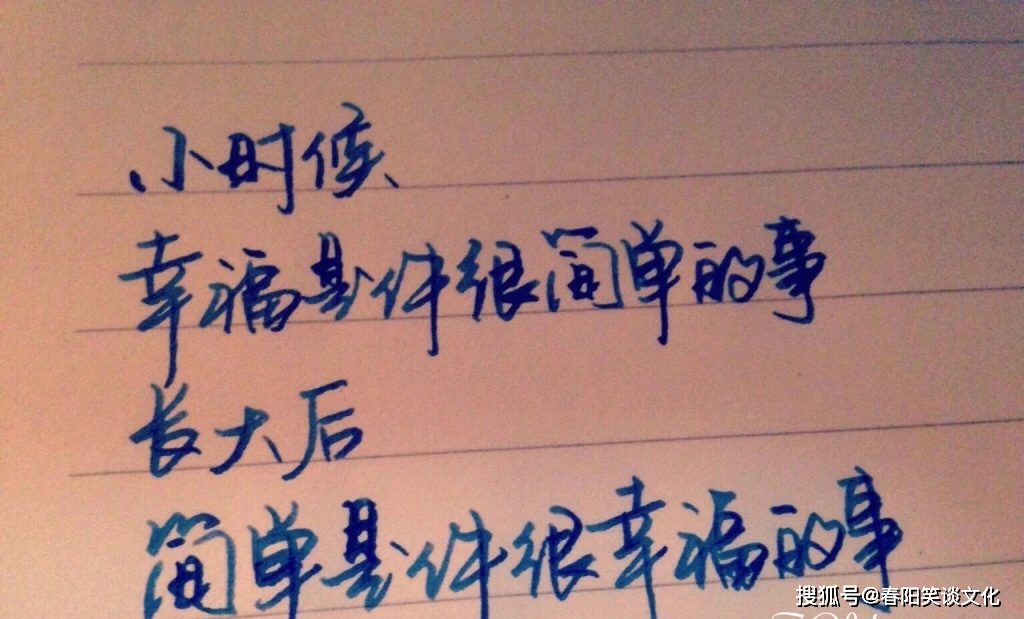 小时候
幸福是件很简单的事
长大后
简单是件很幸福的事
搜狐号@春阳笑谈文化